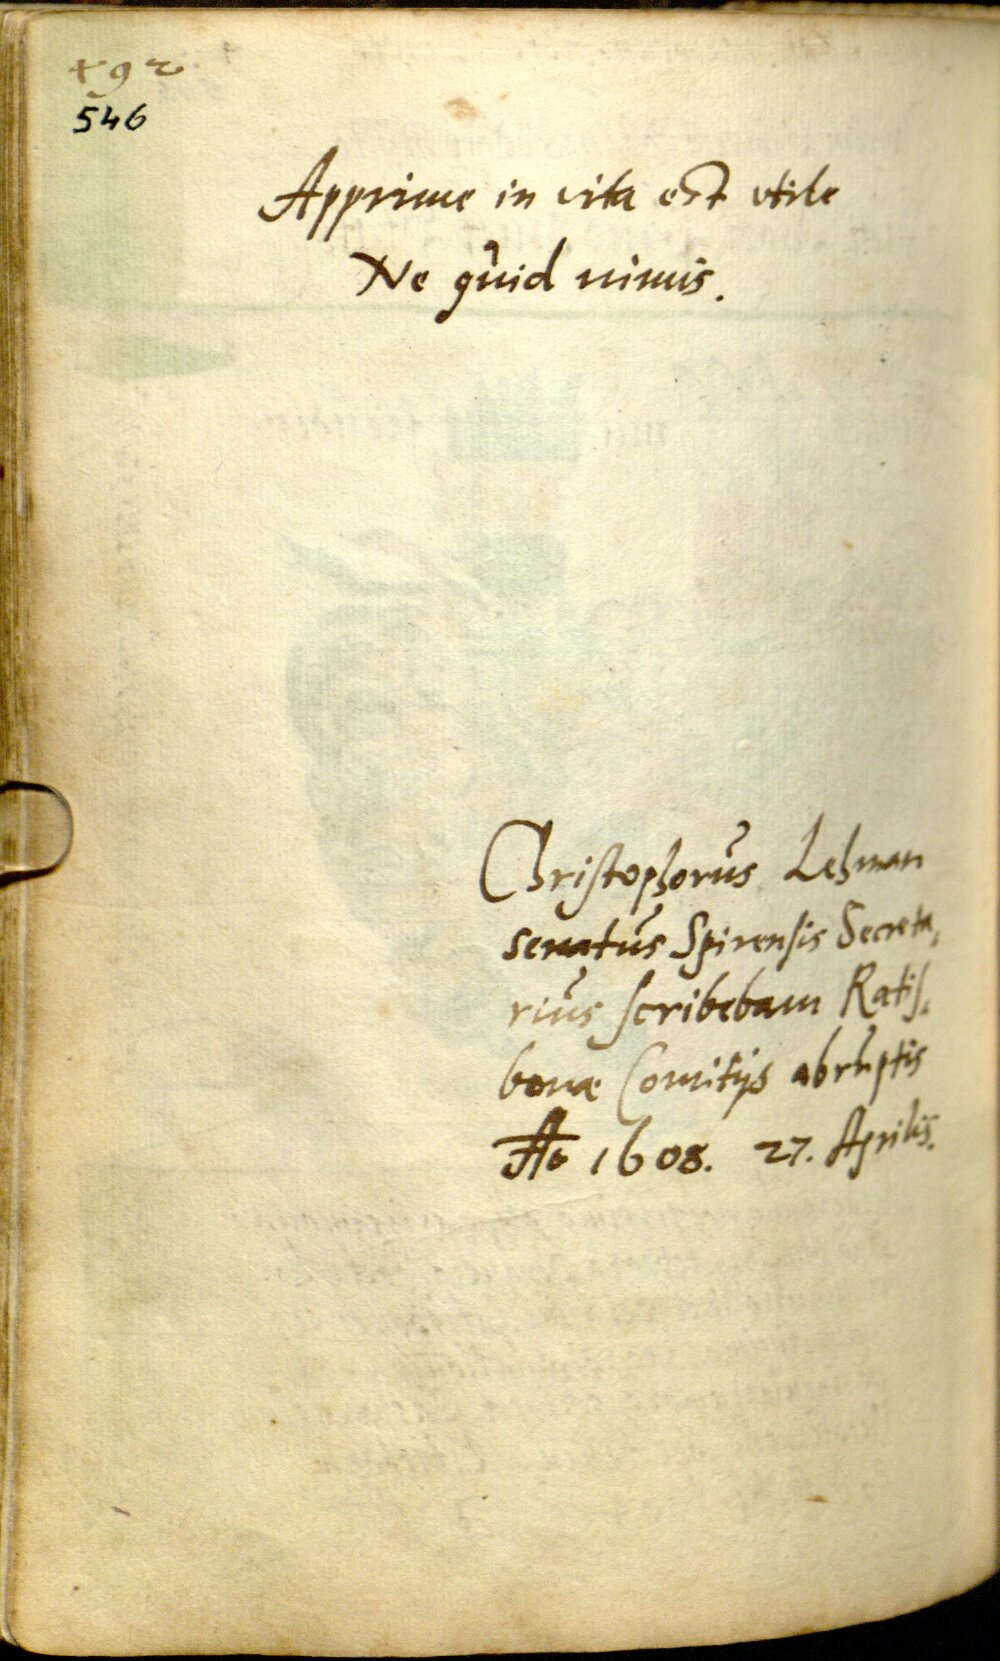 492
546
Apprime in vita est vtile
Ne quid nimis.
Christophorus Lehman
senatus Spirensis Secreta,
rius scribebam Ratis,
bonæ Comitijs abruptis
Ao 1608. 27. Aprilis.